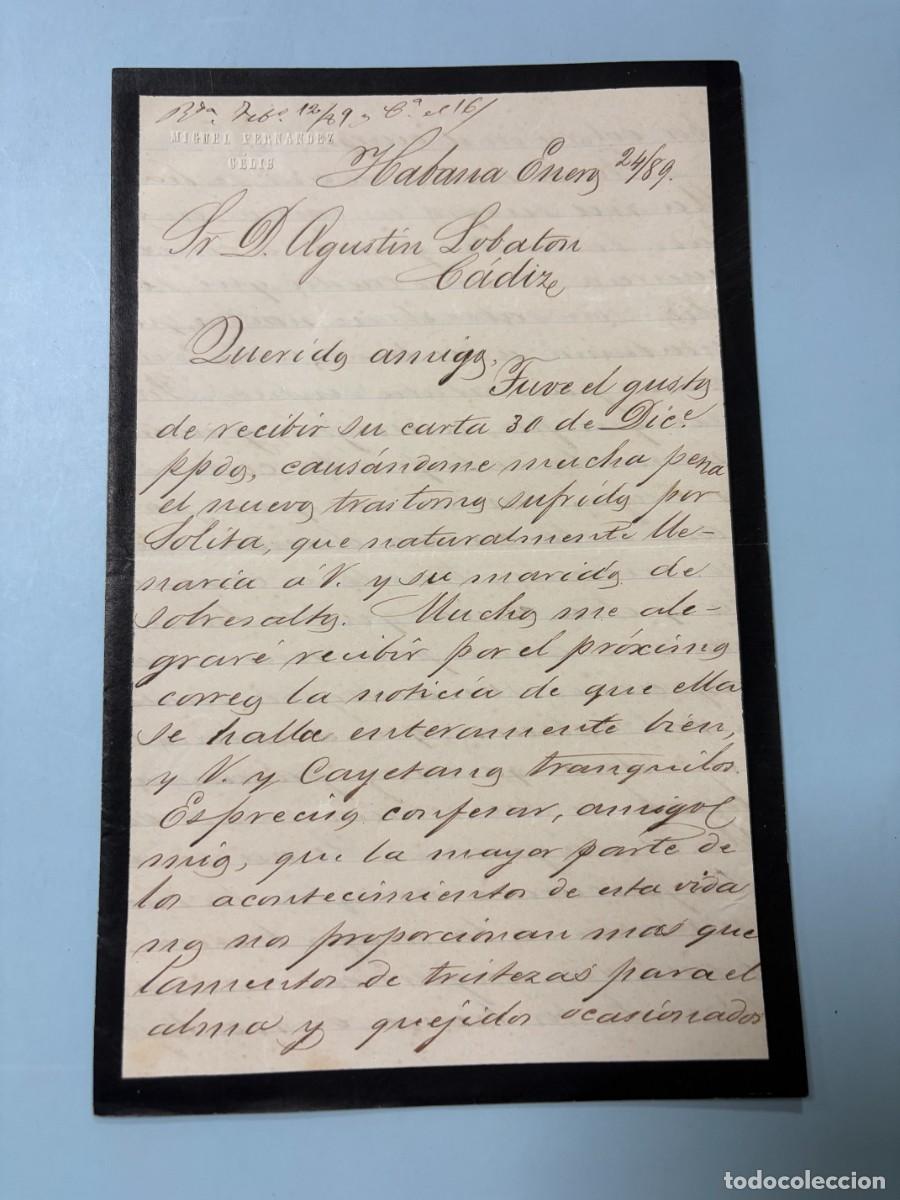 Rda. Febo. 12/89 y Ca. el 16/
MIGUEL FERNANDEZ
CÉLIS
Habana Enero 24/89.
Sr. D. Agustín Lobaton
Cádiz
Querido amigo,
Tuve el gusto
de recibir su carta 30 de Dice.
ppdo, causándome mucha pena
el nuevo trastorno sufrido por
Solita, que naturalmente lle-
naría á V. y su marido de
sobresalto. Mucho me ale-
graré recibir por el próximo
correo la noticia de que ella
se halla enteramente bien,
y V. y Cayetano tranquilos.
Es preciso confesar, amigo
mio, que la mayor parte de
los acontecimientos de esta vida
no nos proporcionan mas que
lamentos de tristezas para el
alma y quejidos ocasionados
todocoleccion